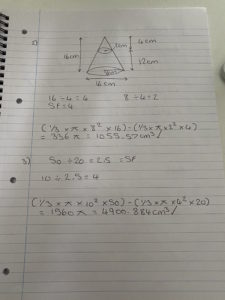 2)
16cm
4cm
12cm
16cm
16 - 4 = 4
8 ÷ 4 = 2
SF = 4
(1/3 × π × 8² × 16) - (1/3 × π × 2² × 4)
= 336 π = 1055.57cm³ ✓
3) 50 ÷ 20 = 2.5 = SF
10 ÷ 2.5 = 4
(1/3 × π × 10² × 50) - (1/3 × π × 4² × 20)
= 1560 π = 4900.884cm³ ✓